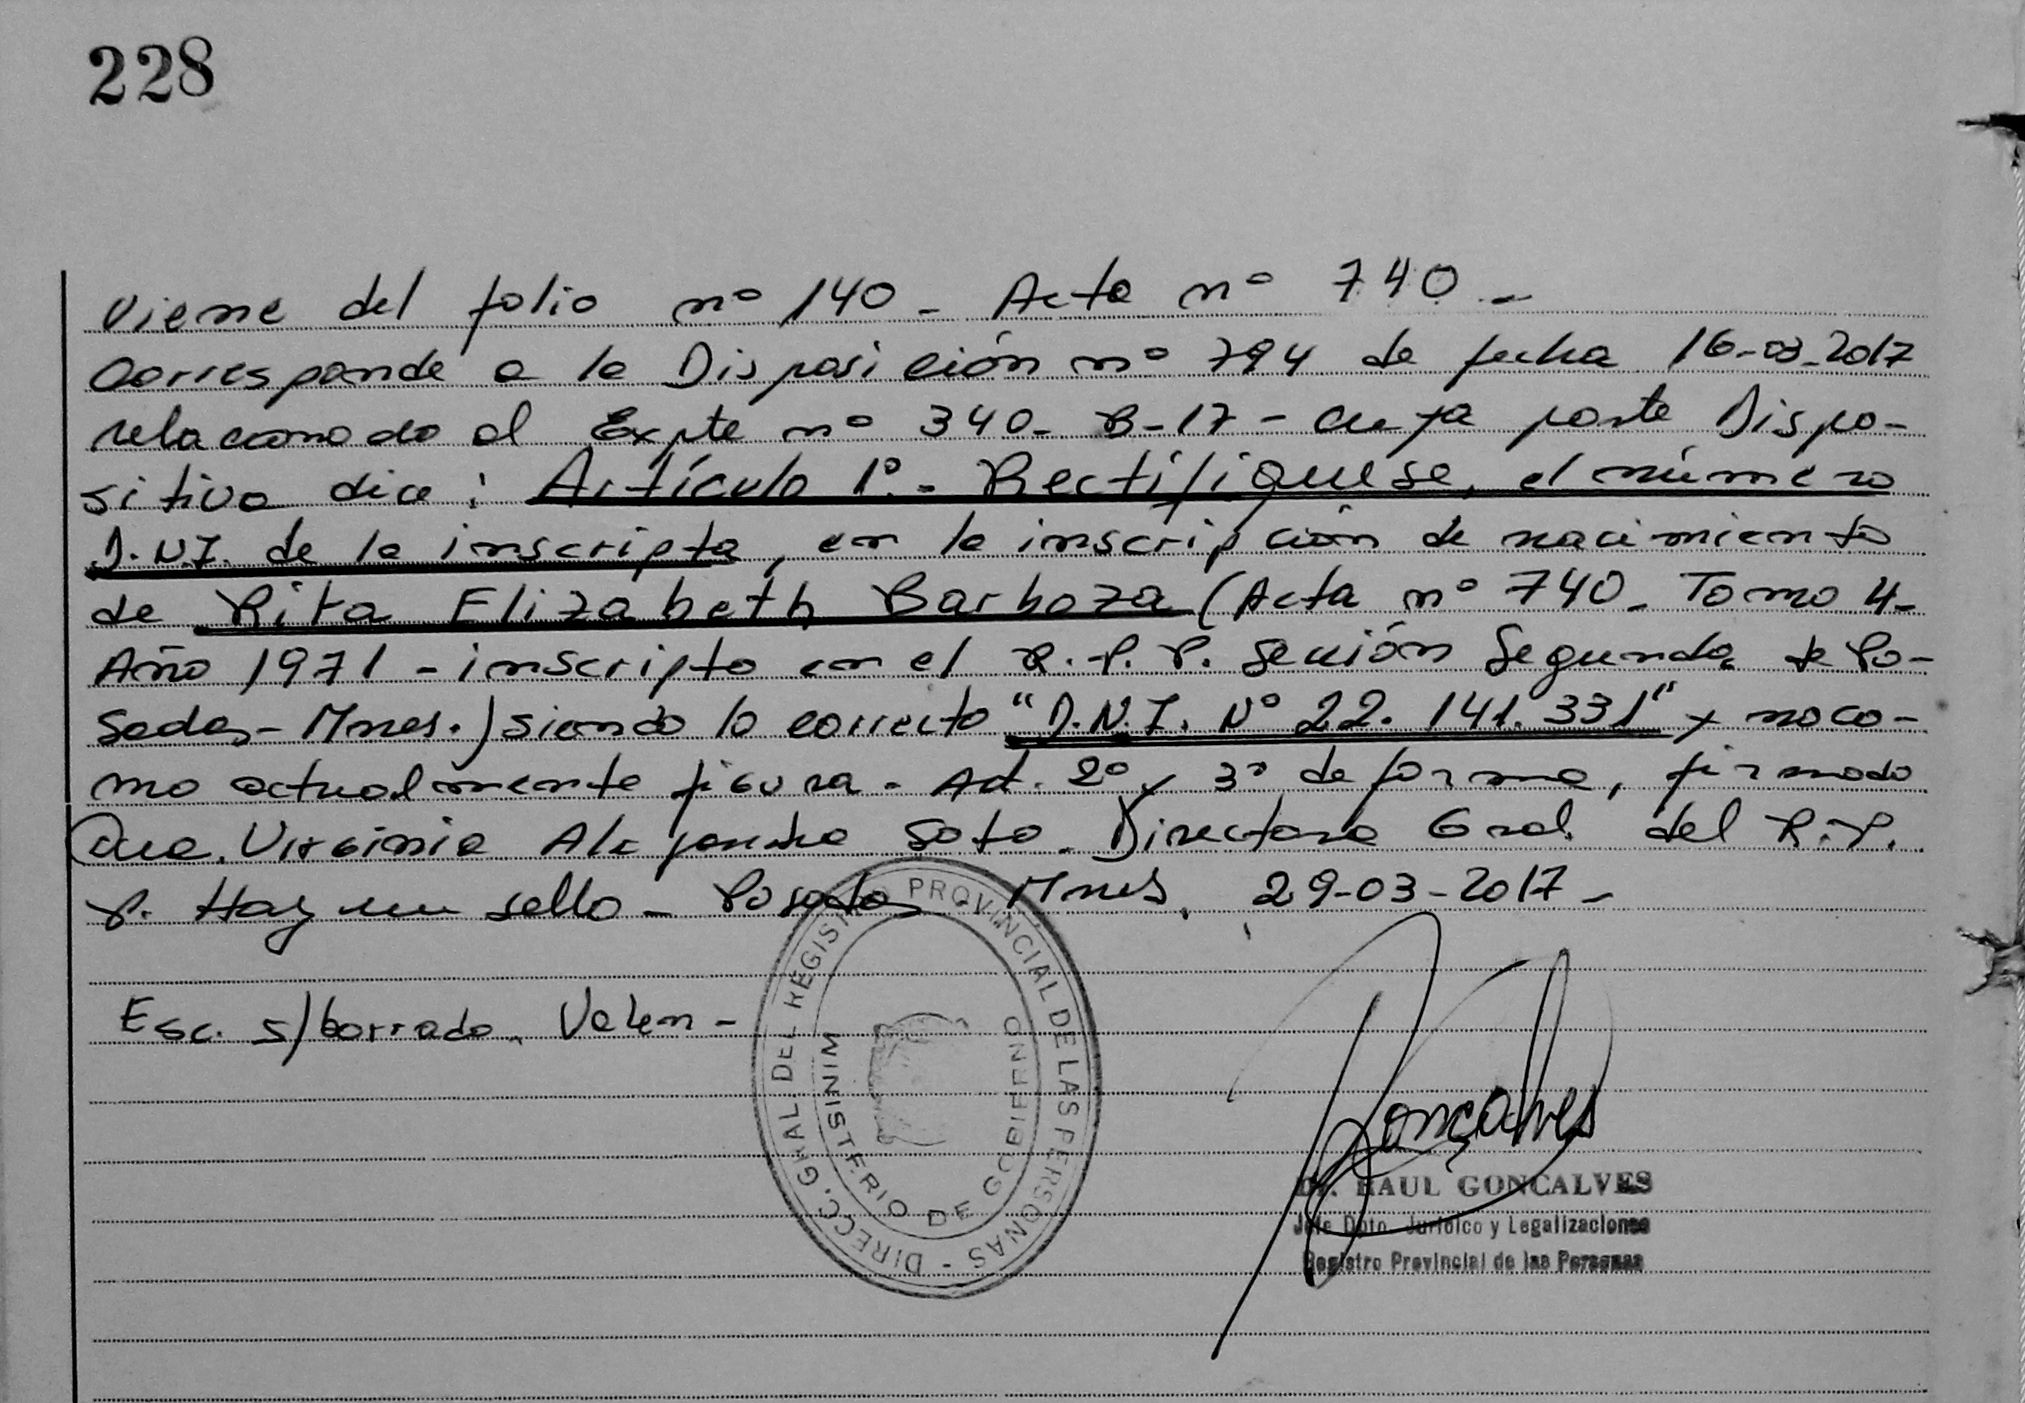 228
Viene del folio nº 140 - Acta nº 740 -
Corresponde a la Disposición nº 794 de fecha 16-03-2017
relacionado al Expte nº 340 - B-17 - cuya parte Dispo-
sitiva dice: Artículo 1º.- Rectifíquese, el número
D.N.I. de la inscripta, en la inscripción de nacimiento
de Rita Elizabeth Barboza (Acta nº 740 - Tomo 4 -
Año 1971 - inscripto en el R.P.P. Sección Segunda de Po-
sadas - Mnes.) siendo lo correcto "D.N.I. Nº 22.141.331" y no co-
mo actualmente figura - Art. 2º y 3º de forma, firmado
Virginia Alejandra Soto. Directora Gral. del R.P.
P. Hay un sello - Posadas Mnes, 29-03-2017 -
Esc. s/borrado. Valen -
DIRECC. GRAL DEL REGISTRO PROVINCIAL DE LAS PERSONAS -
MINISTERIO DE GOBIERNO
Goncalves
Dr. RAUL GONCALVES
Jefe Dpto. Jurídico y Legalizaciones
Registro Provincial de las Personas